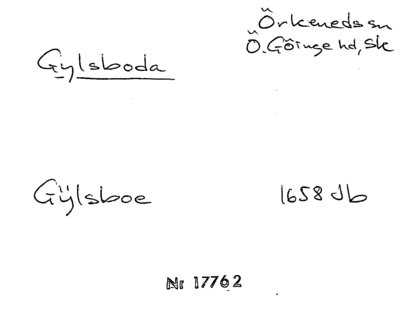 Örkeneds sn
Gylsboda Ö. Göinge hd, Sk
Gÿlsboe 1658 Jb
Nr 17762